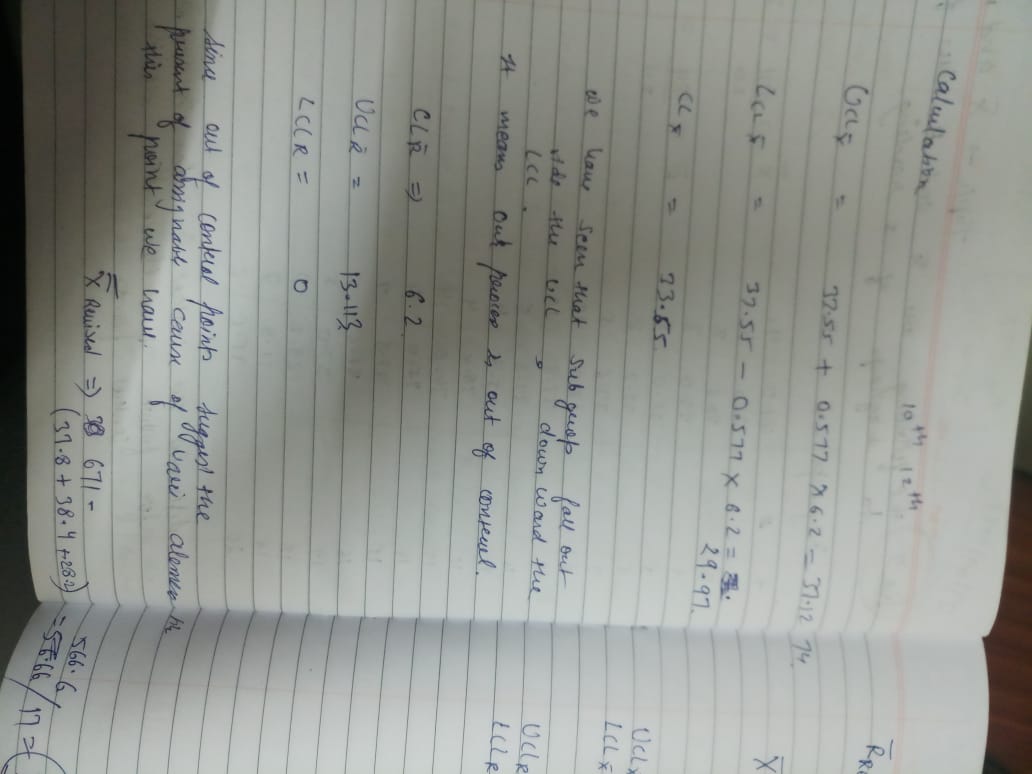 10th 12th
Calculation
UCL x̄ = 37.55 + 0.577 × 6.2 = 37.12 74.
LCL x̄ = 37.55 - 0.577 × 6.2 =
29.97
CL x̄ = 33.55
We have seen that sub group fall out
side the UCL , down ward the
LCL.
It means our process is out of control.
CL R̄ => 6.2
UCL R̄ = 13.113
LCL R = 0
Since out of control points suggest the
present of assignable cause of
this point we have.
X̿ Revised => 671 -
(37.8 + 38.4 + 28.2) = 566.6
/ 17 =
R̄
X̄
UCL x̄
LCL x̄
UCL R
LCL R